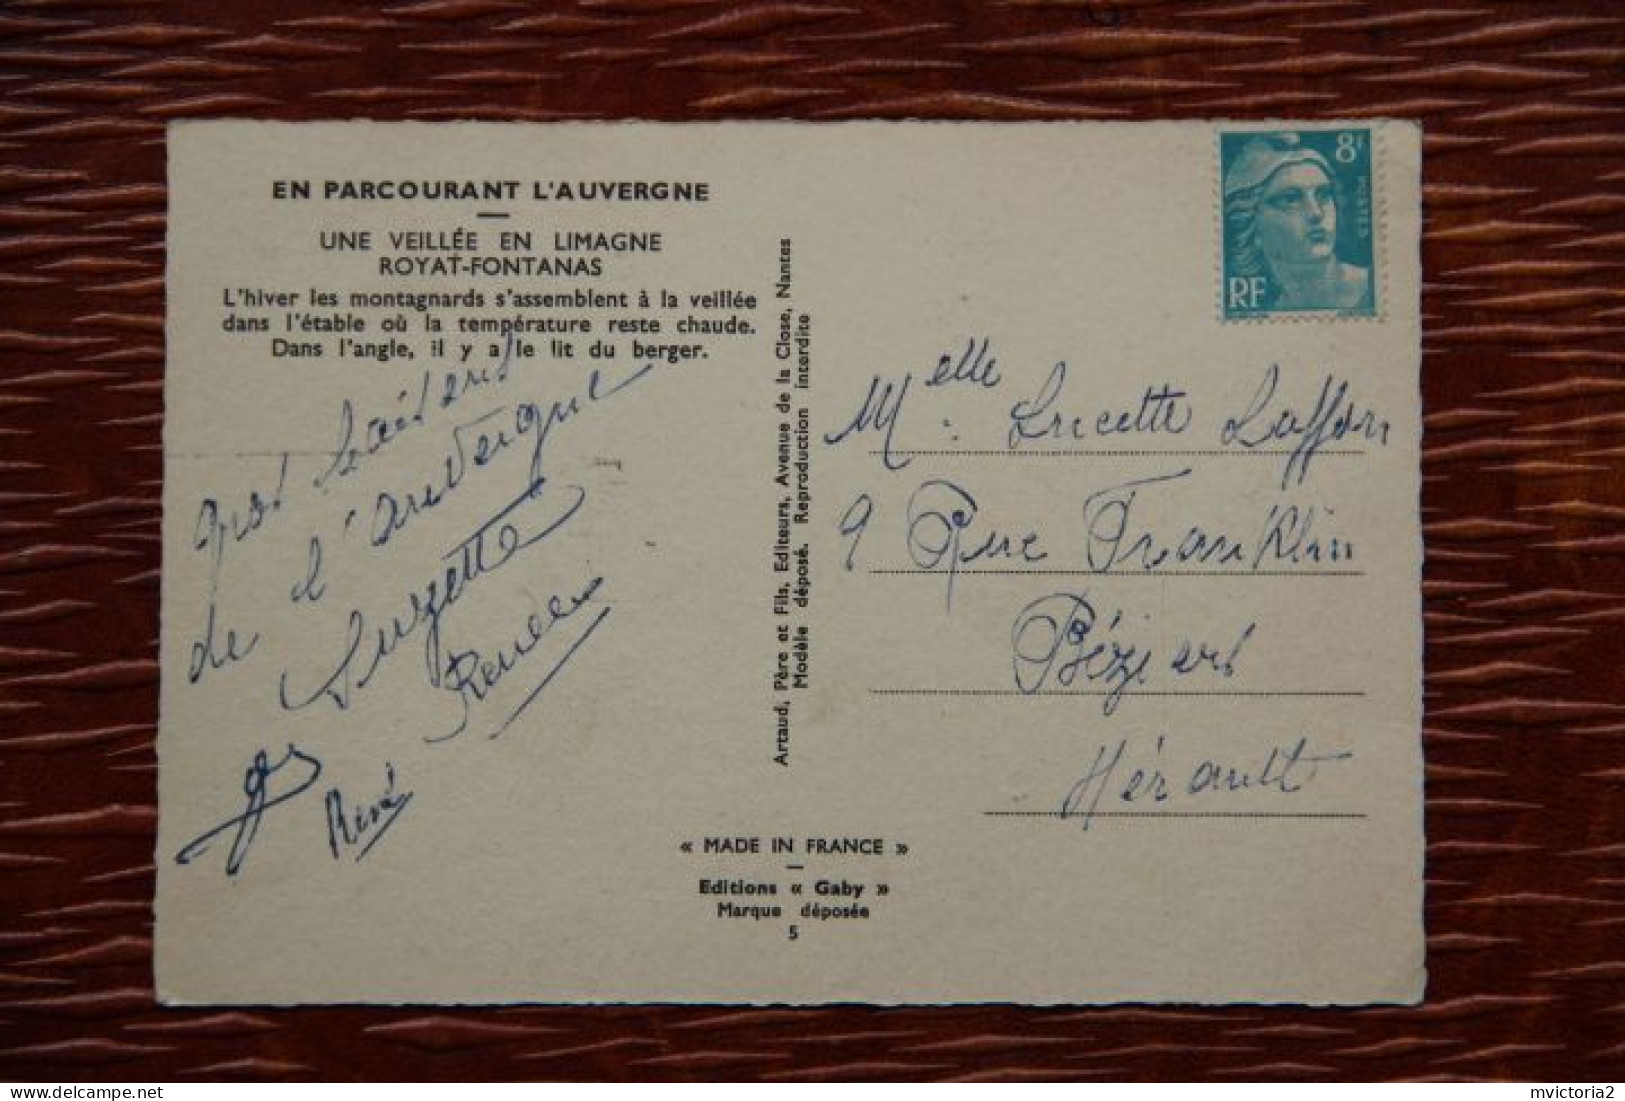 EN PARCOURANT L'AUVERGNE
UNE VEILLÉE EN LIMAGNE
ROYAT-FONTANAS
L'hiver les montagnards s'assemblent à la veillée
dans l'étable où la température reste chaude.
Dans l'angle, il y a le lit du berger.
Gros baisers
de l'Auvergne
Suzette
Renée
René
Artaud, Père et Fils, Editeurs, Avenue de la Close, Nantes
Modèle déposé. Reproduction interdite
8F
POSTES
RF
Melle Lucette Laffon
9 Rue Franklin
Béziers
Hérault
« MADE IN FRANCE »
Editions « Gaby »
Marque déposée
5
mvictoria2